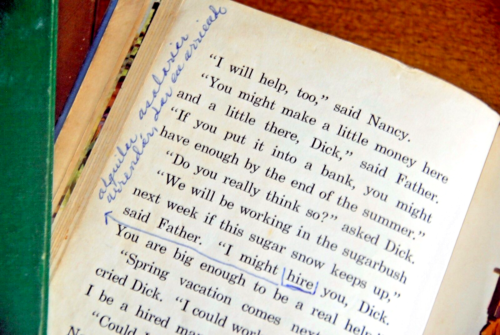 alquilar asalariar
arrendar dar en arriendo
"I will help, too," said Nancy.
"You might make a little money here
and a little there, Dick," said Father.
"If you put it into a bank, you might
have enough by the end of the summer."
"Do you really think so?" asked Dick.
"We will be working in the sugarbush
next week if this sugar snow keeps up,"
said Father. "I might hire you, Dick.
You are big enough to be a real help
"Spring vacation comes next
cried Dick. "I could work
I be a hired man
"Could